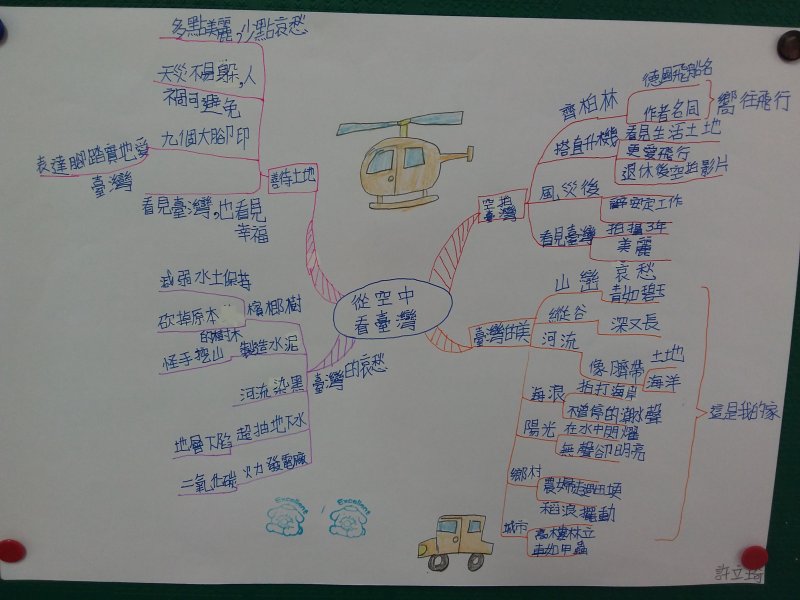 從空中
看臺灣
空拍
臺灣
齊柏林
德國飛船名
作者名同
嚮往飛行
搭直升機
看見生活土地
更愛飛行
退休後空拍影片
風災後
辭安定工作
看見臺灣
拍攝3年
美麗
哀愁
臺灣的美
山巒
青如碧玉
縱谷
深又長
河流
像臍帶
土地
海洋
海浪
拍打海岸
不曾停的潮水聲
陽光
在水中閃耀
無聲卻明亮
鄉村
農婦走過田埂
稻浪擺動
城市
高樓林立
車如甲蟲
這是我的家
善待土地
多點美麗,少點哀愁
天災不易躲,人
禍可避免
九個大腳印
表達腳踏實地愛
臺灣
看見臺灣,也看見
幸福
臺灣的哀愁
檳榔樹
減弱水土保持
砍掉原本
的樹木
製造水泥
怪手挖山
河流染黑
超抽地下水
地層下陷
火力發電廠
二氧化碳
Excellent
Excellent
許立琦